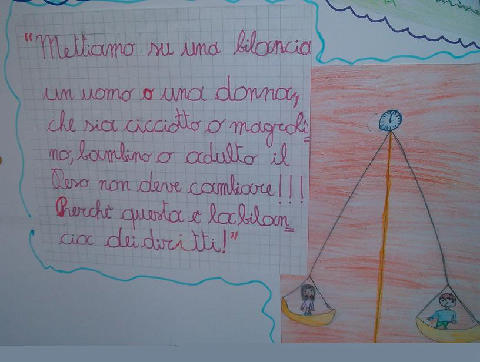 "Mettiamo su una bilancia
un uomo o una donna,
che sia cicciotto o magroli=
no, bambino o adulto il
Peso non deve cambiare!!!
Perchè questa è la bilan=
cia dei diritti!"